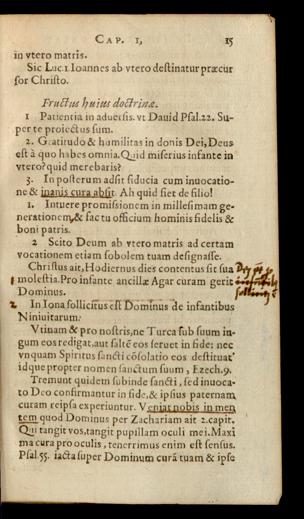 CAP. 1, 15
in vtero matris.
Sic Luc 1 Ioannes ab vtero destinatur præcur
sor Christo.
Fructus huius doctrinæ.
1 Patientia in aduersis. vt Dauid Psal.22. Su-
per te proiectus sum.
2. Gratitudo & humilitas in donis Dei, Deus
est à quo habes omnia. Quid miserius infante in
vtero? quid merebaris?
3. In posterum adsit fiducia cum inuocatio-
ne & inanis cura absit. Ah quid fiet de filio!
1. Intuere promissionem in millesimam ge-
nerationem, & fac tu officium hominis fidelis &
boni patris.
2 Scito Deum ab vtero matris ad certam
vocationem etiam sobolem tuam designasse.
Christus ait, Hodiernus dies contentus sit sua
molestia. Pro infante ancillæ Agar curam gerit
Dominus.
In Iona sollicitus est Dominus de infantibus
Niniuitarum.
Vtinam & pro nostris, ne Turca sub suum iu-
gum eos redigat, aut saltē eos seruet in fide: nec
vnquam Spiritus sancti cōsolatio eos destituat
idque propter nomen sanctum suum, Ezech.9.
Tremunt quidem subinde sancti, sed inuoca-
to Deo confirmantur in fide, & ipsius paternam
curam reipsa experiuntur. Veniat nobis in men
tem quod Dominus per Zachariam ait 2. capit.
Qui tangit vos, tangit pupillam oculi mei. Maxi
ma cura pro oculis, tenerrimus enim est sensus.
Psal 55. iacta super Dominum curā tuam & ipse